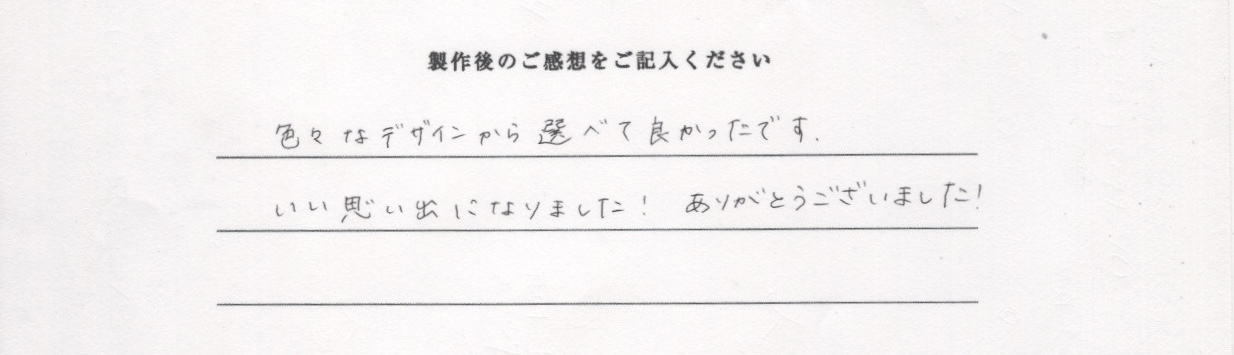 製作後のご感想をご記入ください
色々なデザインから選べて良かったです.
いい思い出になりました! ありがとうございました!